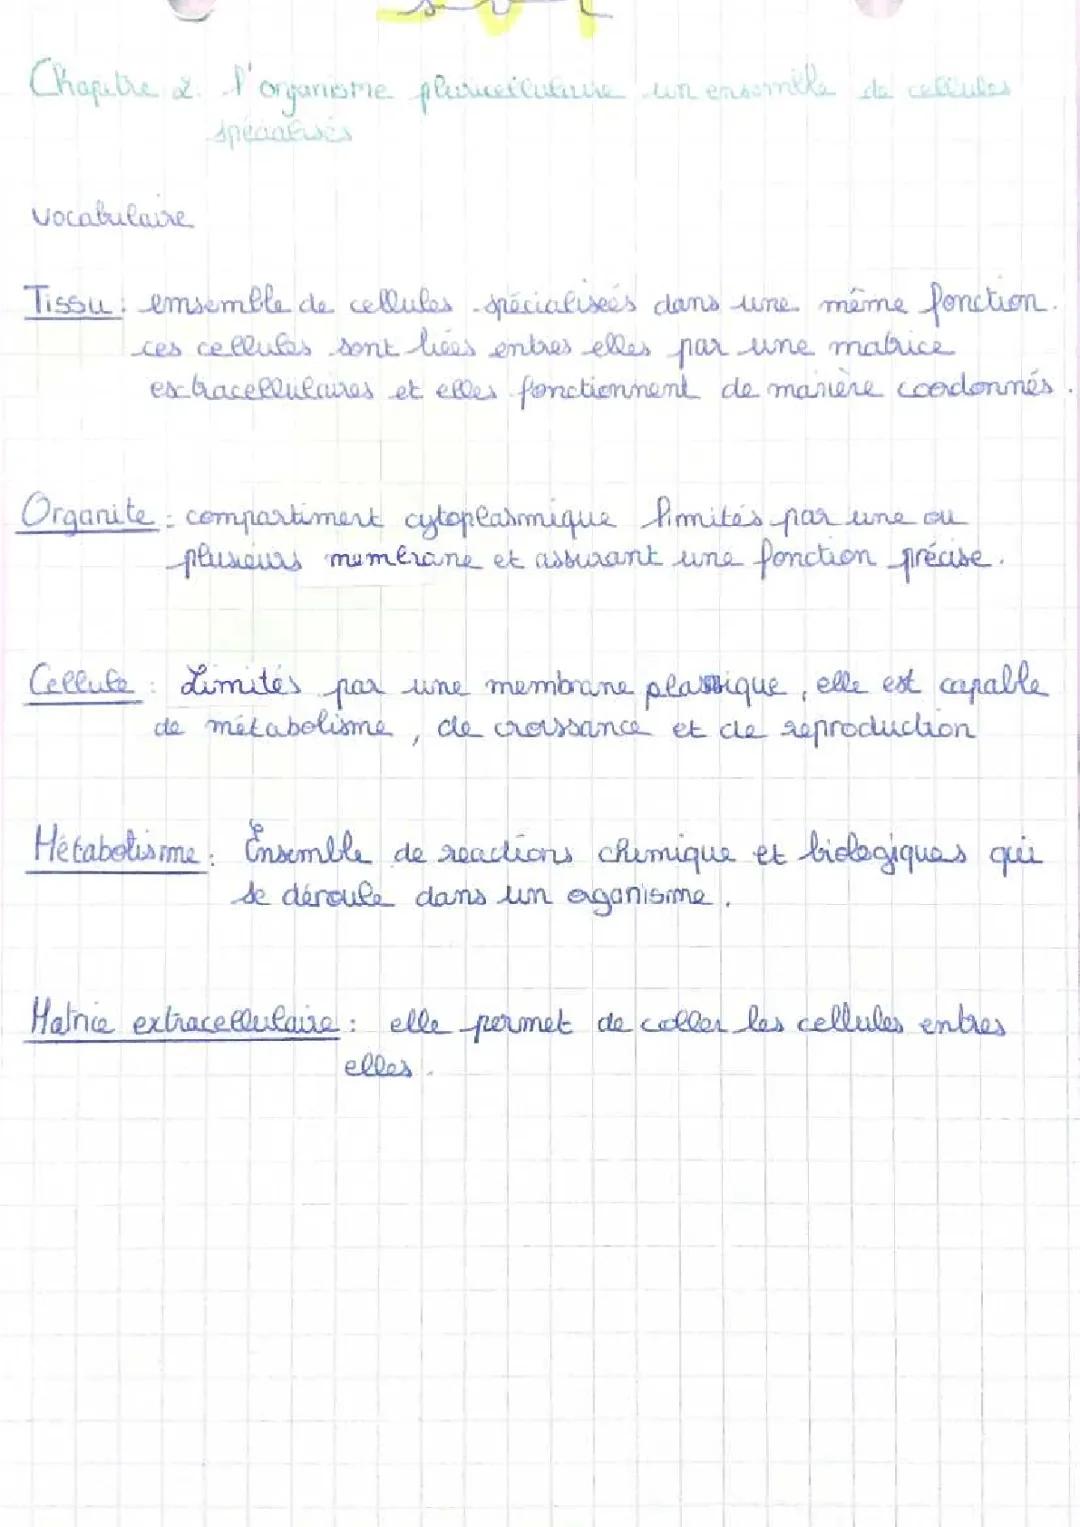 Chapitre 2. l'organisme pluricellulaire un ensemble de cellules
spécialisés
vocabulaire
Tissu : emsemble de cellules spécialiseés dans une même fonction.
ces cellules sont liées entres elles par une matrice
extracellulaires et elles fonctionnent de manière coordonnés.
Organite : compartiment cytoplasmique limités par une ou
plusieurs membrane et assurant une fonction précise.
Cellule : Limités par une membrane plasmique, elle est capable
de métabolisme, de croissance et de reproduction
Métabolisme : Ensemble de reactions chimique et biologiques qui
se déroule dans un organisme.
Matrice extracellulaire : elle permet de coller les cellules entres
elles.